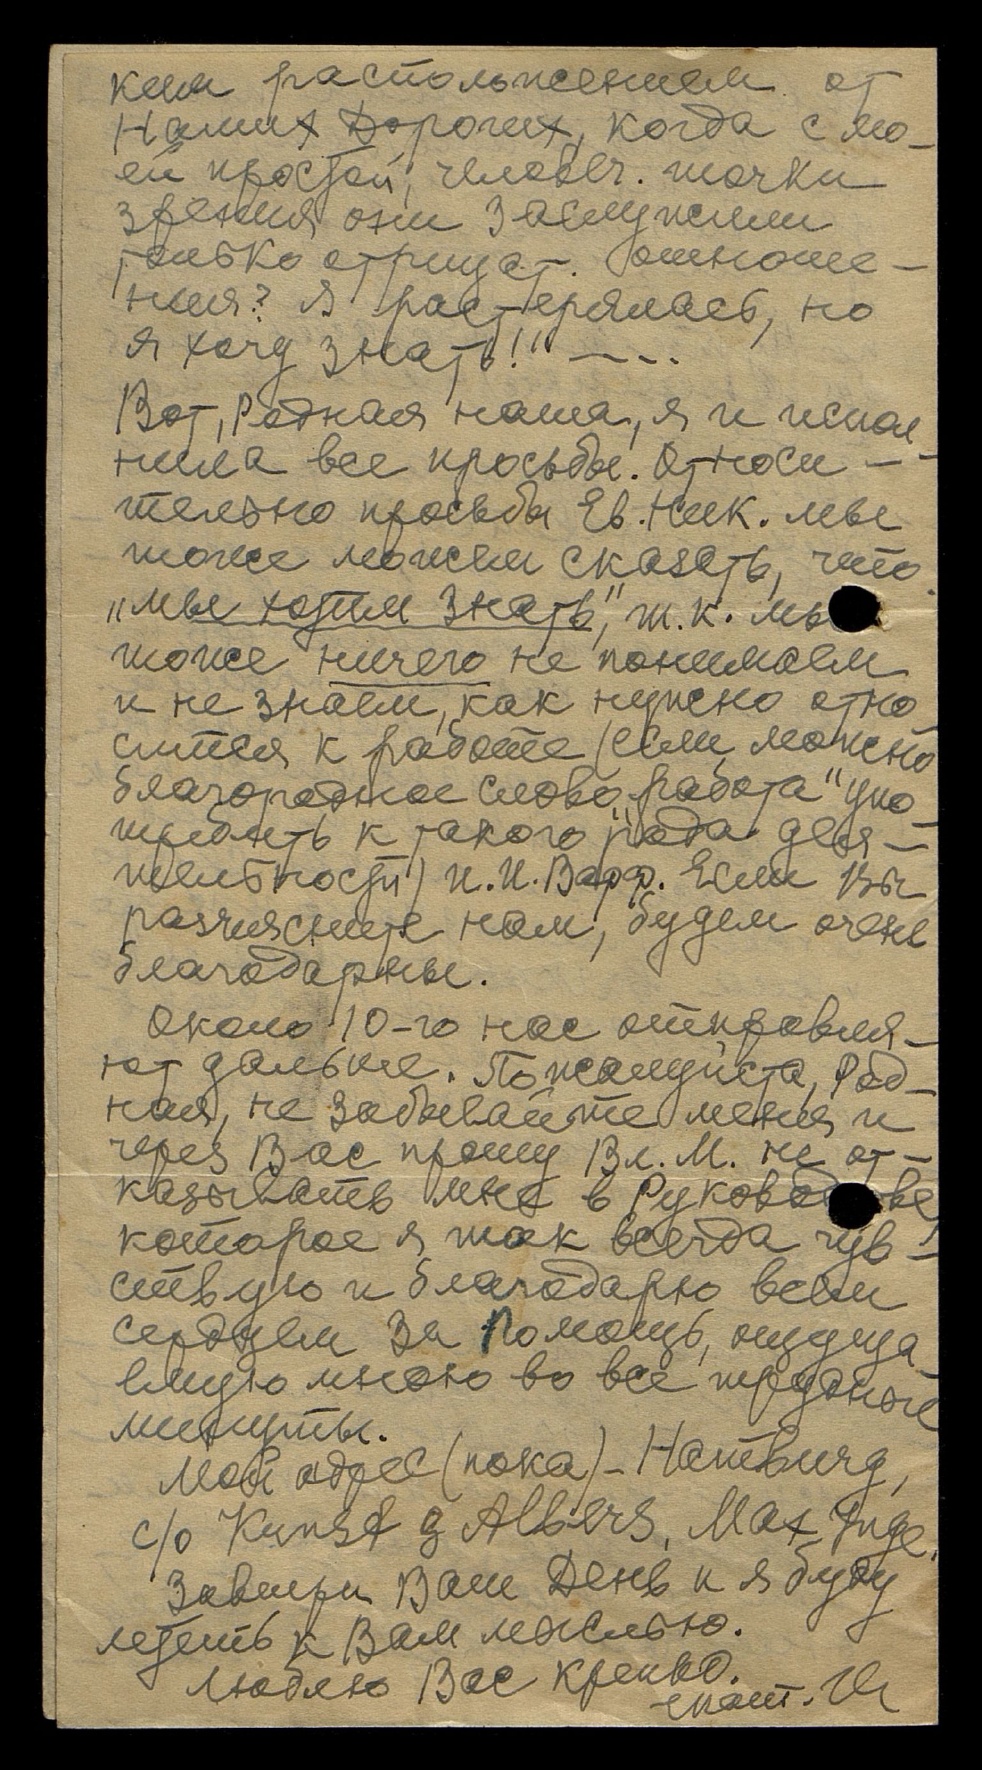 ким располжением от
Наших Дорогих, когда с мо-
ей простой, человеч. точки
зрения они заслужили
только отрицат. отноше-
ния? Я растерялась, но
я хочу знать!" – – - -
Вот, Родная наша, я и испол
нила все просьбы. Относи--
тельно просьбы Ев. Ник. мы
тоже можем сказать, что
„мы хотим знать", т.к. мы
тоже ничего не понимаем
и не знаем, как нужно отно
сится к работе (если можно
благородное слово „работа" упо
треблять к такого рода дея-
тельности) и. И. Варф. Если Вы
разъясните нам, будем очень
благодарны.
Около 10-го нас отправля-
ют дальше. Пожалуйста, Род-
ная, не забывайте меня и
через Вас прошу Вл. М. не от-
казывать мне в Руководстве,
которое я так всегда чув-
ствую и благодарю всем
сердцем за помощь, ощуща
емую мною во все трудные
минуты.
Мой адрес (пока) – Hamburg,
c/o Kunst & Albers, Max
Завтра Ваш День и я буду
лететь к Вам мыслью.
Люблю Вас крепко.